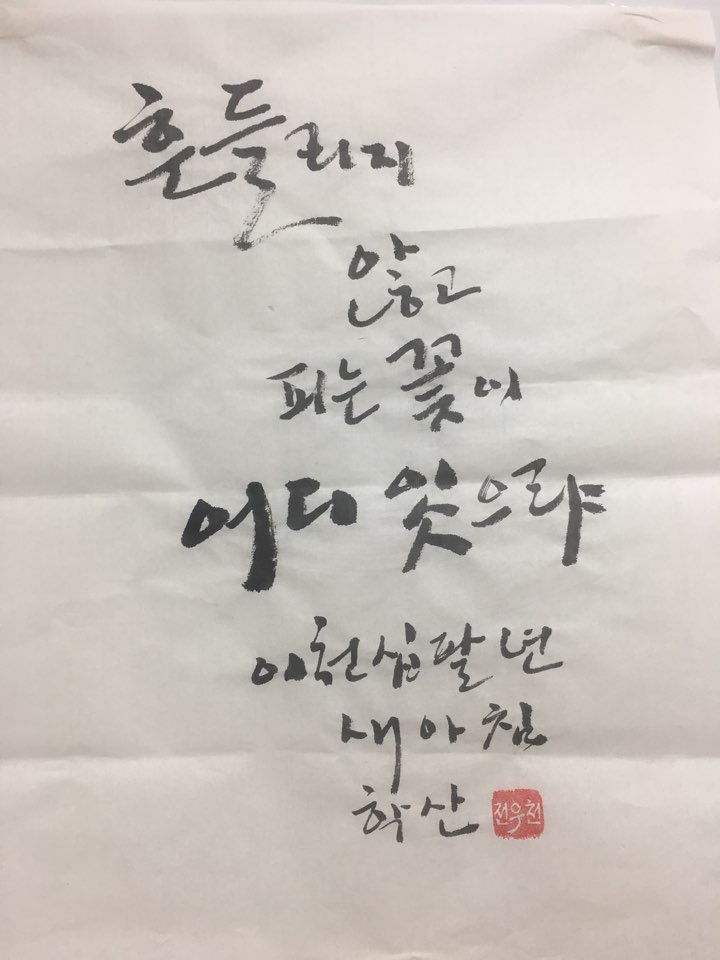 흔들리지
않고
피는 꽃이
어디 잇으랴
이천십팔년
새아침
학산 전우천